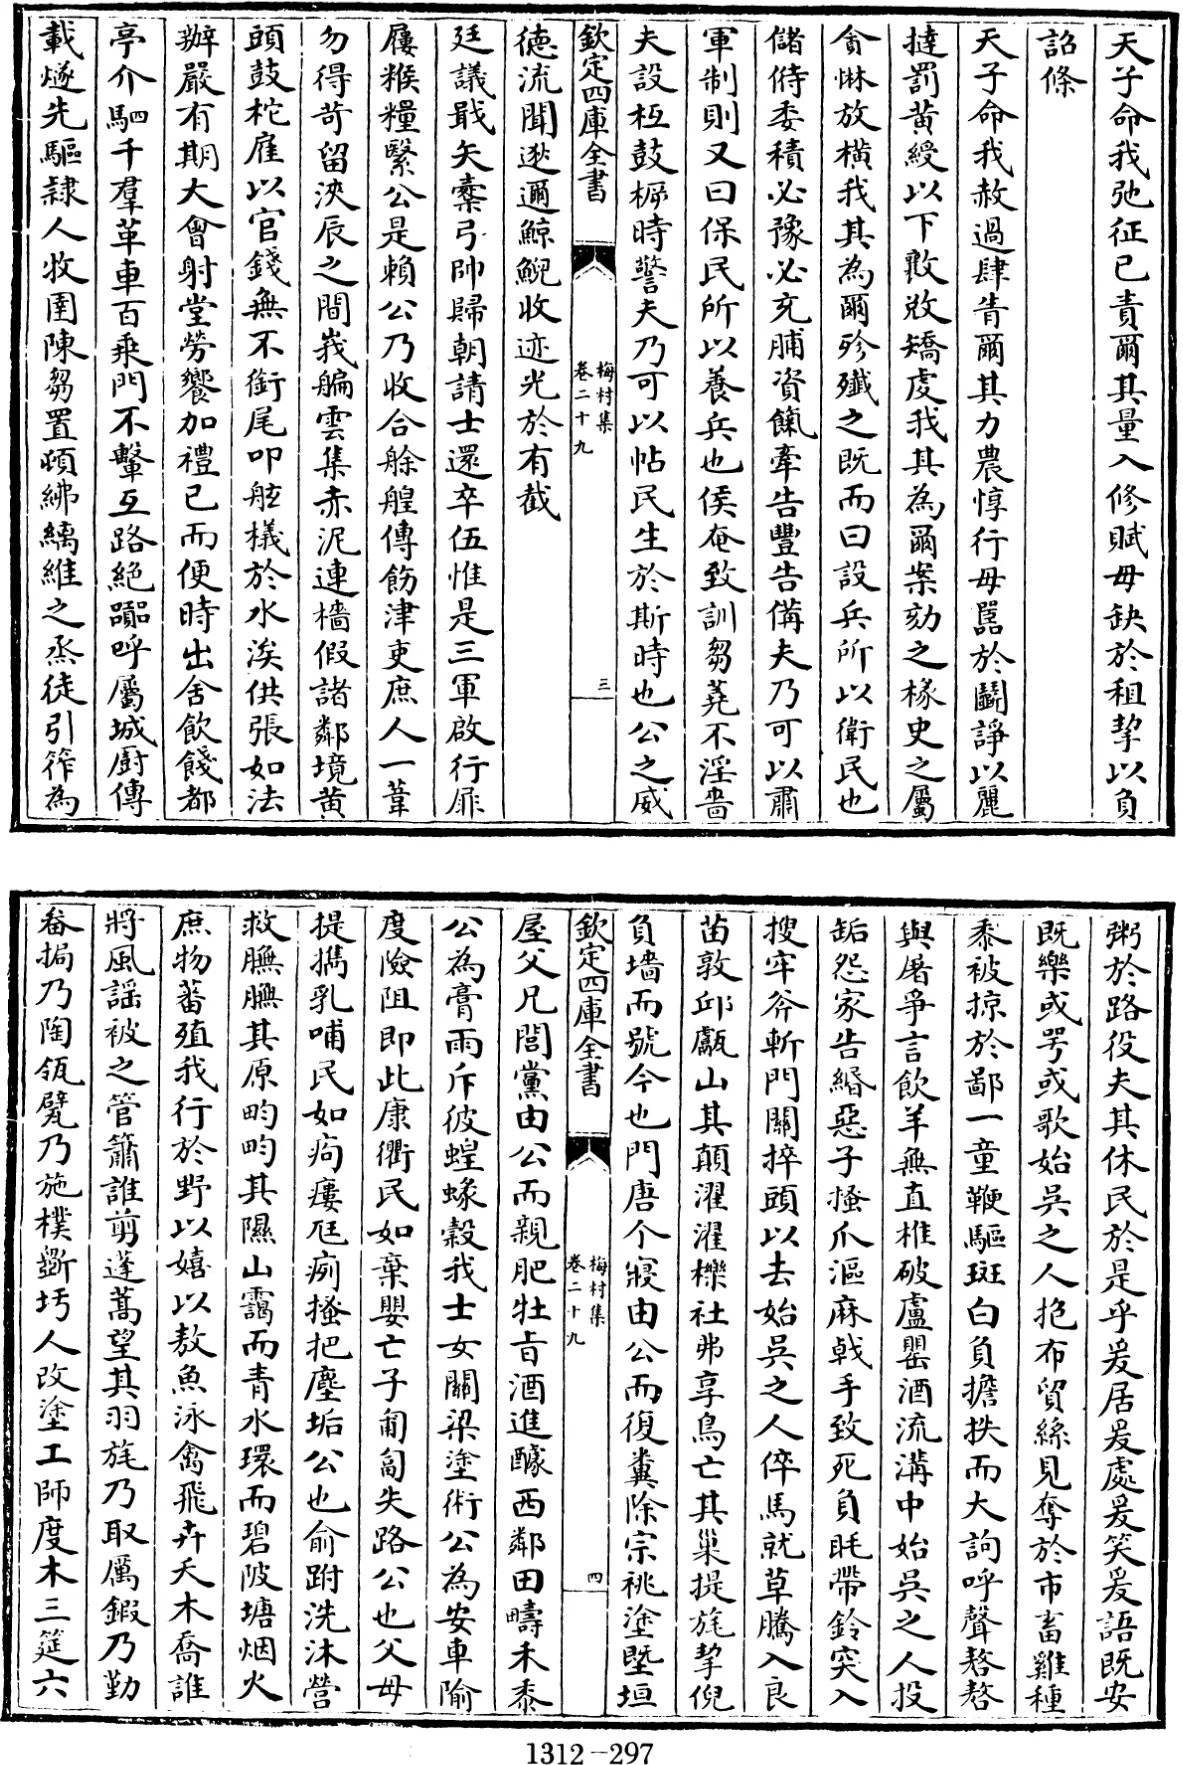 天子命我弛征已責爾其量入修賦毋缺於租挈以負
詔條
天子命我赦過肆眚爾其力農惇行毋嚚於鬭諍以麗
撻罰黄綬以下敢敚矯虔我其為爾案劾之椽史之屬
貪惏放横我其為爾殄殱之既而曰設兵所以衛民也
儲偫委積必豫必充脯資餼牽告豐告備夫乃可以肅
軍制則又曰保民所以養兵也侯奄致訓芻蕘不淫嗇
夫設枑鼓㭼時警夫乃可以帖民生於斯時也公之威
欽定四庫全書
梅村集
卷二十九
三
德流聞逖邇鯨鯢收迹光於有截
廷議戢矢櫜弓帥歸朝請士還卒伍惟是三軍啟行屝
屨糇糧繄公是賴公乃收合艅艎傳飭津吏庶人一葦
勿得苛留浹辰之間峩艑雲集赤泥連檣假諸鄰境黄
頭鼓柁雇以官錢無不銜尾叩舷檥於水涘供張如法
辦嚴有期大會射堂勞饗加禮已而便時出舍飲餞都
亭介駟千羣革車百乘門不轚互路絶嘂呼屬城厨傳
載燧先驅隸人牧圉陳芻置頓紼纚維之烝徒引筰為
粥於路役夫其休民於是乎爰居爰處爰笑爰語既安
既樂或咢或歌始吳之人抱布貿絲見奪於市畜雞種
黍被掠於鄙一童鞭驅斑白負擔抶而大訽呼聲嗸嗸
與屠爭言飲羊無直椎破盧罌酒流溝中始吳之人投
缿怨家告緡惡子搔爪漚麻戟手致死負眊帶鈴突入
搜牢斧斬門關捽頭以去始吳之人倅馬就草騰入良
苗敦邱甗山其顛濯濯櫟社弗享鳥亡其巢提旄挈倪
負墻而號今也門唐个寢由公而復糞除宗祧塗塈垣
欽定四庫全書
梅村集
卷二十九
四
屋父兄閭黨由公而親肥牡㫖酒進醵西鄰田疇禾黍
公為膏雨斥彼蝗蝝穀我士女關梁塗術公為安車隃
度險阻即此康衢民如棄嬰亡子匍匐失路公也父母
提攜乳哺民如痀瘻尫痾搔把塵垢公也俞跗洗沐營
救膴膴其原畇畇其隰山靄而青水環而碧陂塘烟火
庶物蕃殖我行於野以嬉以敖魚泳禽飛卉夭木喬誰
將風謡被之管籥誰剪蓬蒿望其羽旄乃取厲鍛乃勤
畚挶乃陶瓴甓乃施樸斵圬人改塗工師度木三筵六
1312-297